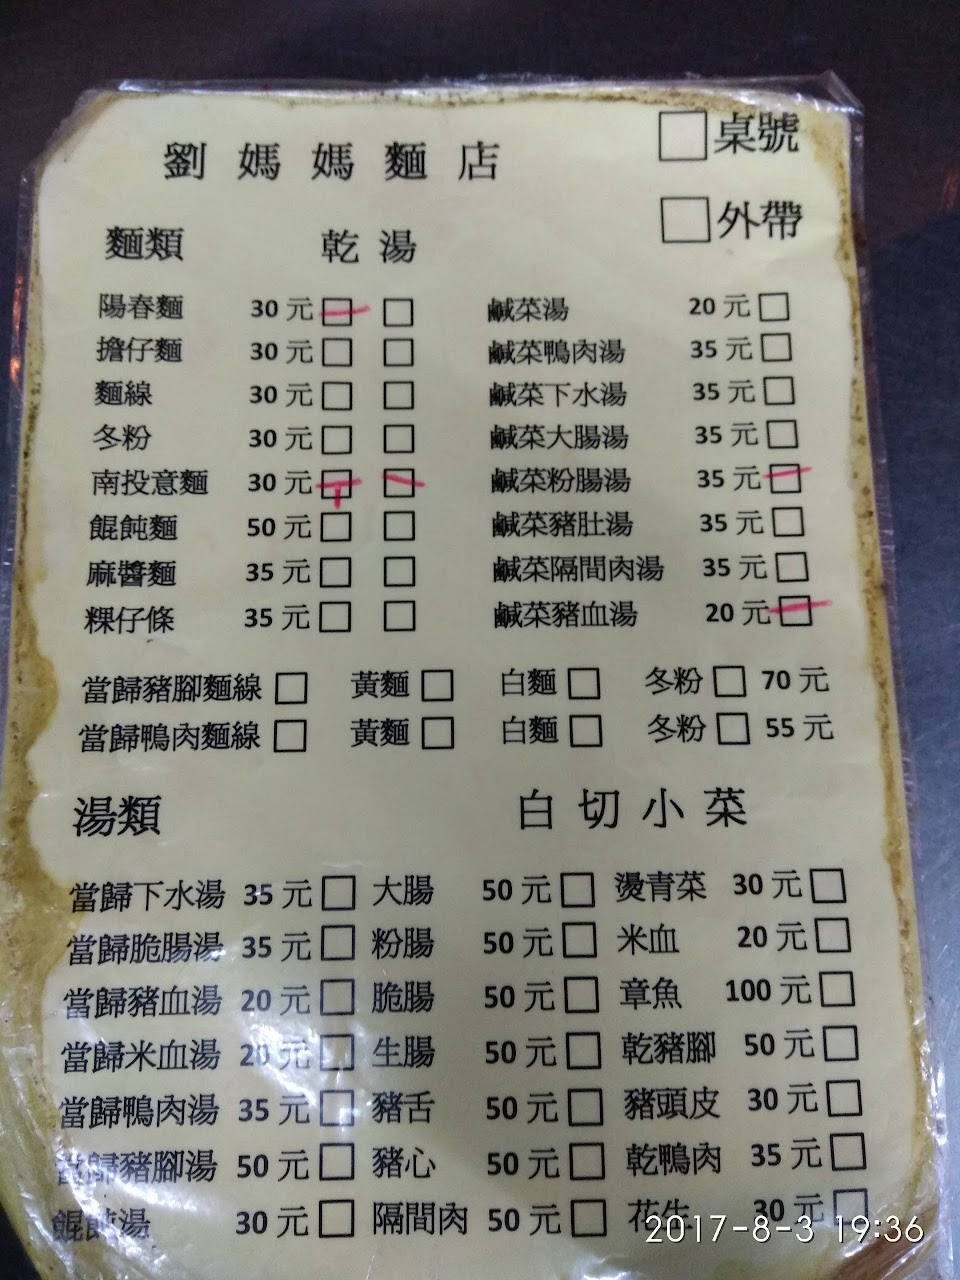 劉媽媽麵店
□桌號
□外帶
麵類 乾 湯
陽春麵 30元 □ □ 鹹菜湯 20元 □
擔仔麵 30元 □ □ 鹹菜鴨肉湯 35元 □
麵線 30元 □ □ 鹹菜下水湯 35元 □
冬粉 30元 □ □ 鹹菜大腸湯 35元 □
南投意麵 30元 □ □ 鹹菜粉腸湯 35元 □
餛飩麵 50元 □ □ 鹹菜豬肚湯 35元 □
麻醬麵 35元 □ □ 鹹菜隔間肉湯 35元 □
粿仔條 35元 □ □ 鹹菜豬血湯 20元 □
當歸豬腳麵線 □ 黃麵 □ 白麵 □ 冬粉 □ 70元
當歸鴨肉麵線 □ 黃麵 □ 白麵 □ 冬粉 □ 55元
湯類 白切小菜
當歸下水湯 35元 □ 大腸 50元 □ 燙青菜 30元 □
當歸脆腸湯 35元 □ 粉腸 50元 □ 米血 20元 □
當歸豬血湯 20元 □ 脆腸 50元 □ 章魚 100元 □
當歸米血湯 20元 □ 生腸 50元 □ 乾豬腳 50元 □
當歸鴨肉湯 35元 □ 豬舌 50元 □ 豬頭皮 30元 □
當歸豬腳湯 50元 □ 豬心 50元 □ 乾鴨肉 35元 □
餛飩湯 30元 □ 隔間肉 50元 □ 花生 30元 □
2017-8-3 19:36